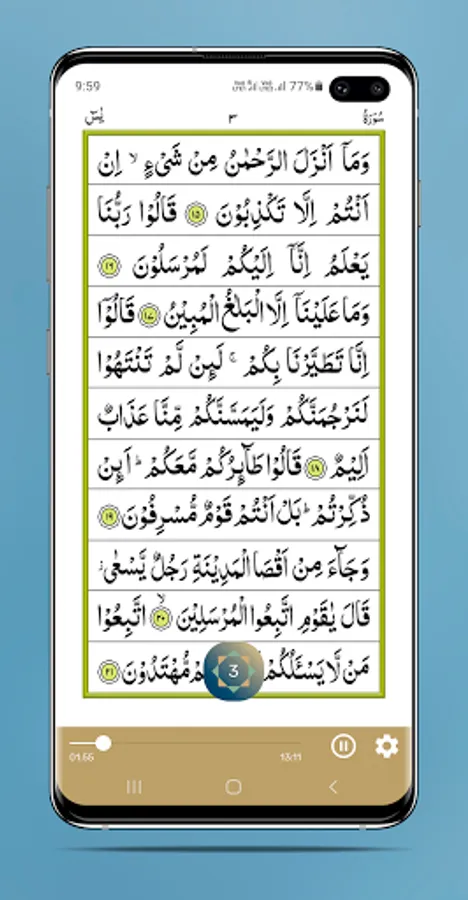 9:59
77%
يٰسٓ ٣ سُوْرَةُ
وَمَآ اَنْزَلَ الرَّحْمٰنُ مِنْ شَیْءٍ ۙ اِنْ
اَنْتُمْ اِلَّا تَكْذِبُوْنَ ﴿١٥﴾ قَالُوْا رَبُّنَا
يَعْلَمُ اِنَّآ اِلَيْكُمْ لَمُرْسَلُوْنَ ﴿١٦﴾
وَمَا عَلَيْنَآ اِلَّا الْبَلٰغُ الْمُبِيْنُ ﴿١٧﴾ قَالُوْٓا
اِنَّا تَطَيَّرْنَا بِكُمْ ۚ لَىِٕنْ لَّمْ تَنْتَهُوْا
لَنَرْجُمَنَّكُمْ وَلَيَمَسَّنَّكُمْ مِّنَّا عَذَابٌ
اَلِيْمٌ ﴿١٨﴾ قَالُوْا طَآىِٕرُكُمْ مَّعَكُمْ ؕ اَىِٕنْ
ذُكِّرْتُمْ ؕ بَلْ اَنْتُمْ قَوْمٌ مُّسْرِفُوْنَ ﴿١٩﴾
وَجَآءَ مِنْ اَقْصَا الْمَدِيْنَةِ رَجُلٌ يَّسْعٰى ؗ
قَالَ يٰقَوْمِ اتَّبِعُوا الْمُرْسَلِيْنَ ﴿٢٠﴾ اتَّبِعُوْا
مَنْ لَّا يَسْـَٔلُكُمْ مُّهْتَدُوْنَ ﴿٢١﴾
3
01:55 13:11